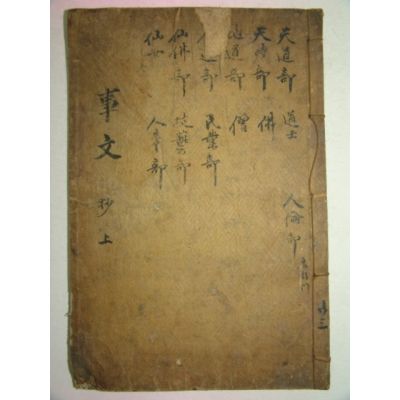 共三
天道部 道士 人倫部
天時部 佛
地道部 僧
道部 民業部
仙佛部 技藝部
仙 人事部
事文 抄 上